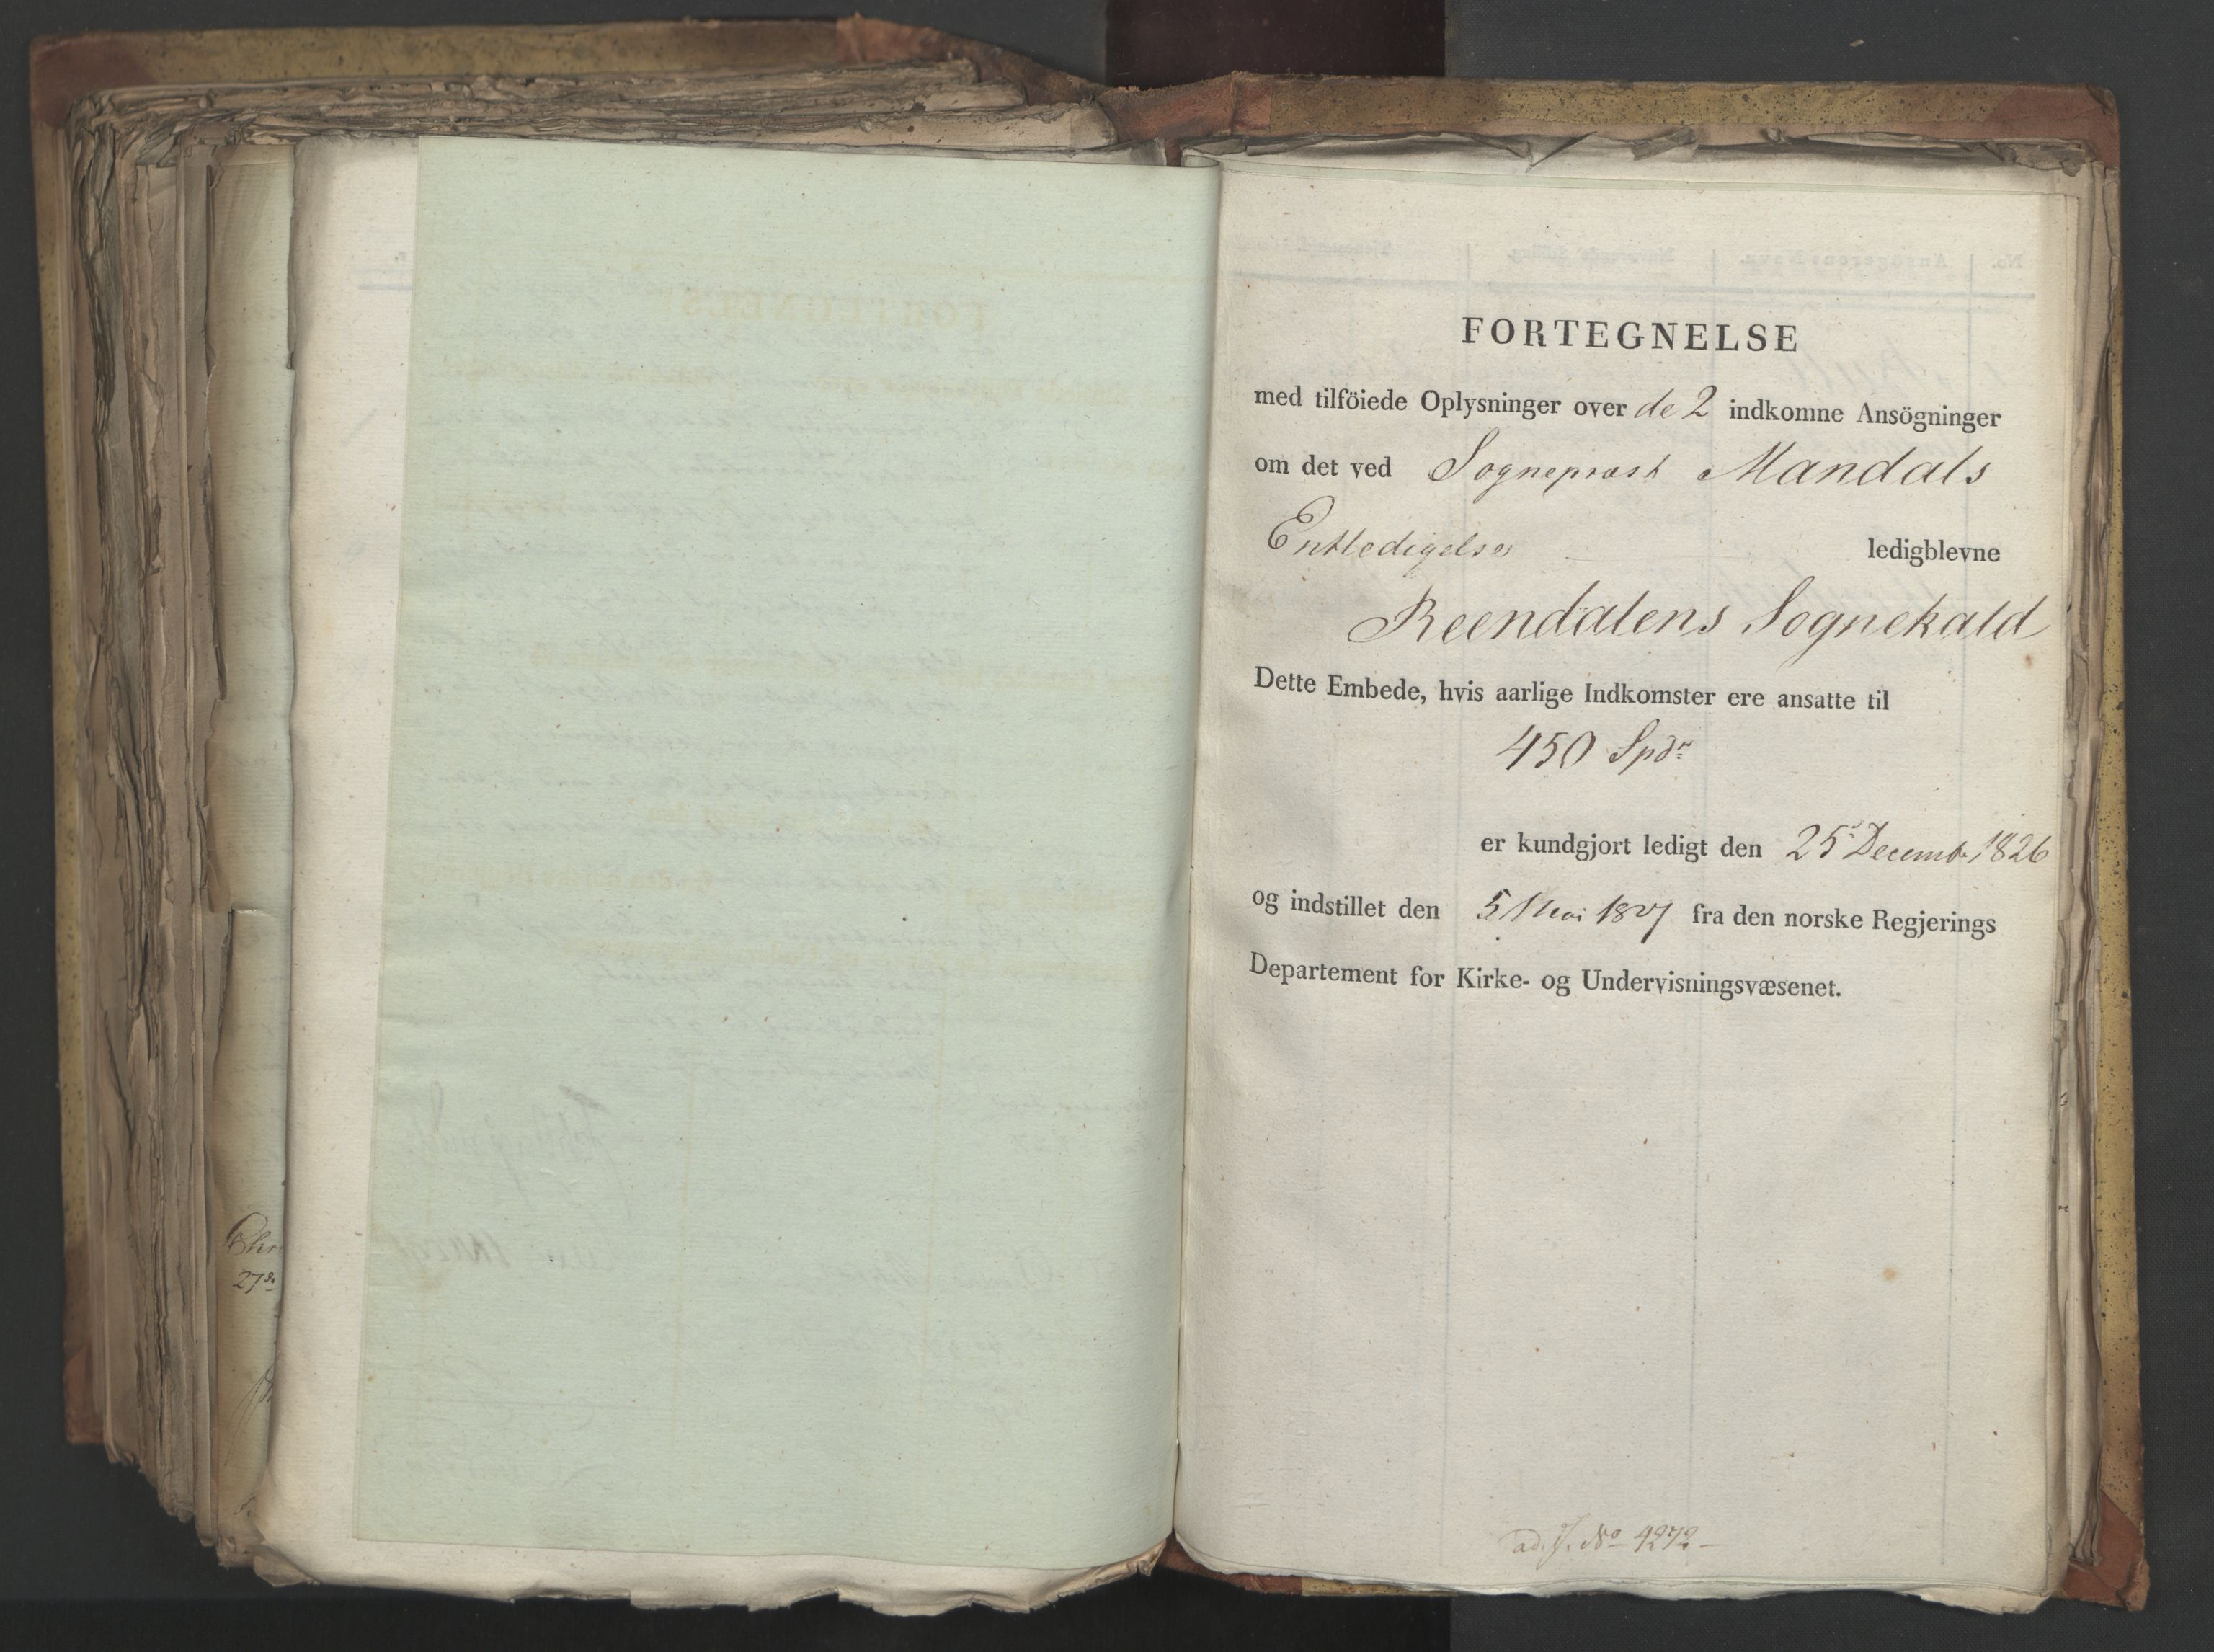 FORTEGNELSE
med tilföiede Oplysninger over de 2 indkomne Ansögninger
om det ved Sognepræst Mandals
Entledigelse ledigblevne
Reendalens Sognekald
Dette Embede, hvis aarlige Indkomster ere ansatte til
450 Spdr
er kundgjort ledigt den 25 Decembr 1826
og indstillet den 5 Mai 1827 fra den norske Regjerings
Departement for Kirke- og Undervisningsvæsenet.
ad J. No 4272
Chr
27de